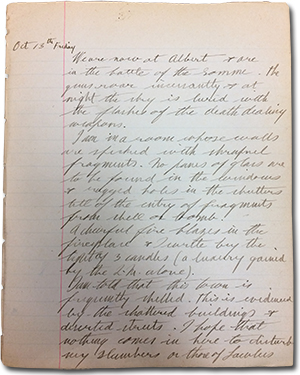 Oct 13th Friday
We are now at Albert & are
in the battle of the Somme. The
guns roar incessantly & at
night the sky is lurid with
the flashes of the death dealing
weapons.
I am in a room whose walls
are splashed with shrapnel
fragments. No panes of glass are
to be found in the windows
& ragged holes in the shutters
tell of the entry of fragments
from shell or bomb.
A cheerful fire blazes in the
fireplace & I write by the
light of 3 candles (a luxury gained
by the alone).
I am told that this town is
frequently shelled. This is evidenced
by the shattered buildings &
deserted streets. I hope that
nothing comes in here to disturb
my slumbers or those of